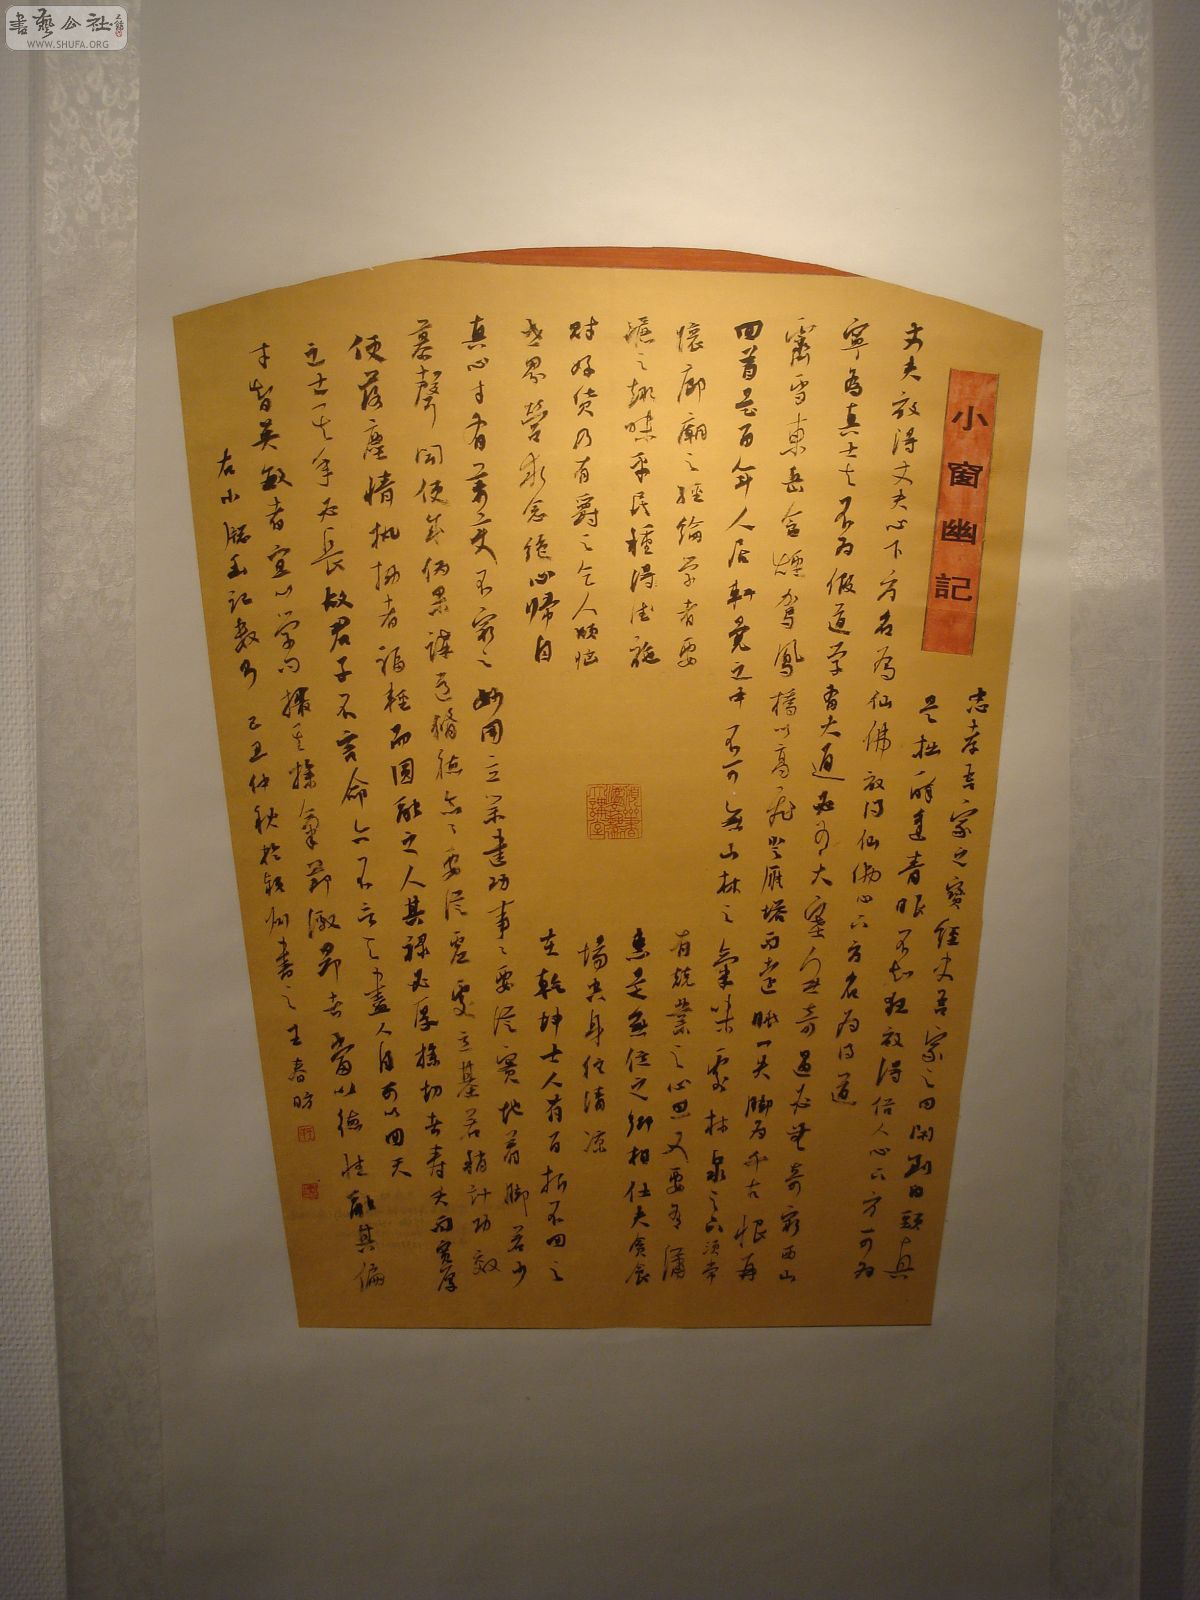 書藝公社
WWW.SHUFA.ORG
小窗幽記
忠孝吾家之寶經史吾家之田閑到白頭真
是拙醉逢青眼不知狂放得俗人心下方可為
丈夫放得丈夫心下方名為仙佛放得仙佛心下方名為得道
寧為真士夫不為假道學
大道
大
人
奇過必無奇窮西山
霽雪東岳含煙駕鳳橋以高飛登雁塔而遠眺一失腳為千古恨再
回首是百年人居軒冕之中不可無山林之氣味處林泉之下須常
懷廊廟之經綸學者要
有兢業之心思又要有瀟
灑之趣味平民種得德施
惠是無位之卿相仕夫貪
財好貨乃有爵之乞人煩惱
場空身住清涼
世界營求念絕心歸自
在乾坤士人有百折不回之
真心才有萬變不窮之妙用立業建功事事要從實地着腳若少
慕聲聞便成偽果講道修德念念要從虛處立基若稍計功效
便落塵情執拗者福輕而圓融之人其祿必厚操切者壽夭而寬厚
之士其年必長故君子不言命亦不言天盡人自可以回天
才智英敏者宜以學問攝其躁氣節激昂者當以德性融其偏
右小窗幽記數則 己丑仲秋於 州書之王春